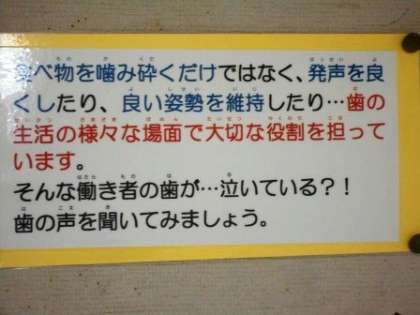 食べ物を噛み砕くだけではなく、発声を良
くしたり、良い姿勢を維持したり…歯の
生活の様々な場面で大切な役割を担って
います。
そんな働き者の歯が…泣いている?!
歯の声を聞いてみましょう。